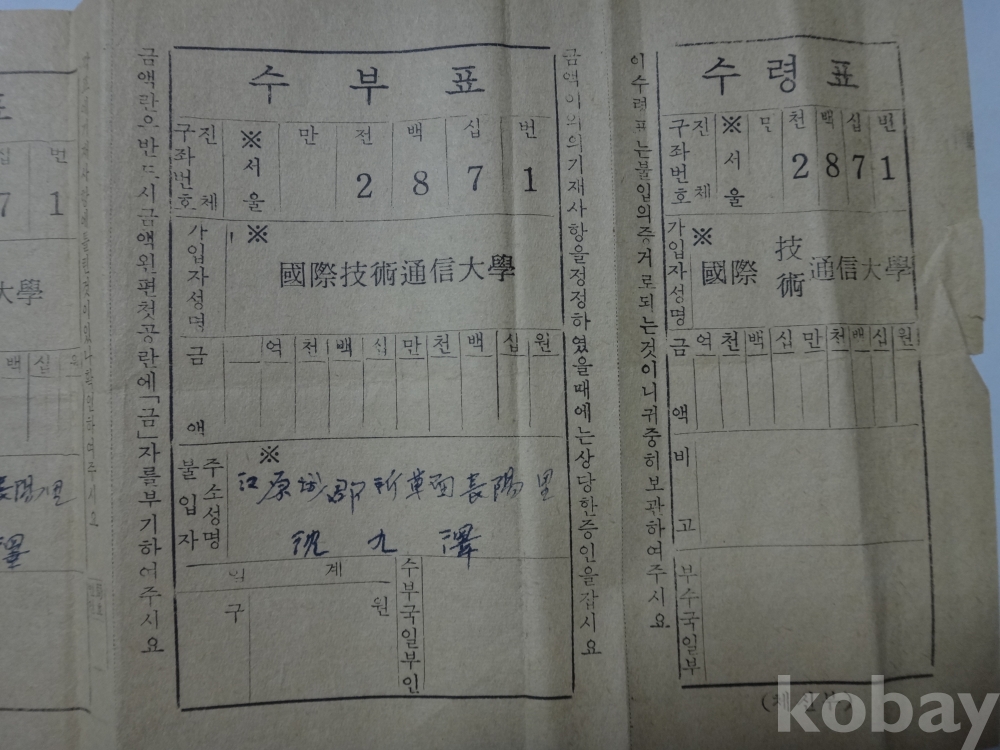 십 번
7 1
大學
백 십 원
長陽里
澤
금액란으반드시금액왼편첫공란에「금」자를부기하여주시요
수부표
구좌번호
진체
※서울
만 전 백 십 번
2 8 7 1
가입자성명
※
國際技術通信大學
금액
억 천 백 십 만 천 백 십 원
불입자
주소성명
※
江原 郡 新草面長陽里
沈九澤
계
구 원
수부국일부인
금액이외의기재사항을정정하였을때에는상당한증인을잡시요
이수령표는불입의증거로되는것이니귀중히보관하여주시요
수령표
구좌번호
진체
※서울
만 천 백 십 번
2 8 7 1
가입자성명
※
國際技術通信大學
금액
억 천 백 십 만 천 백 십 원
비고
부수국일부
kobay